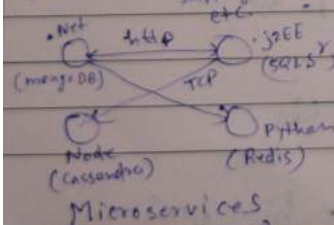 etc.
.Net http j2EE
(mongoDB) TCP (SQLSr)
Node Python
(Cassandra) (Redis)
Microservices